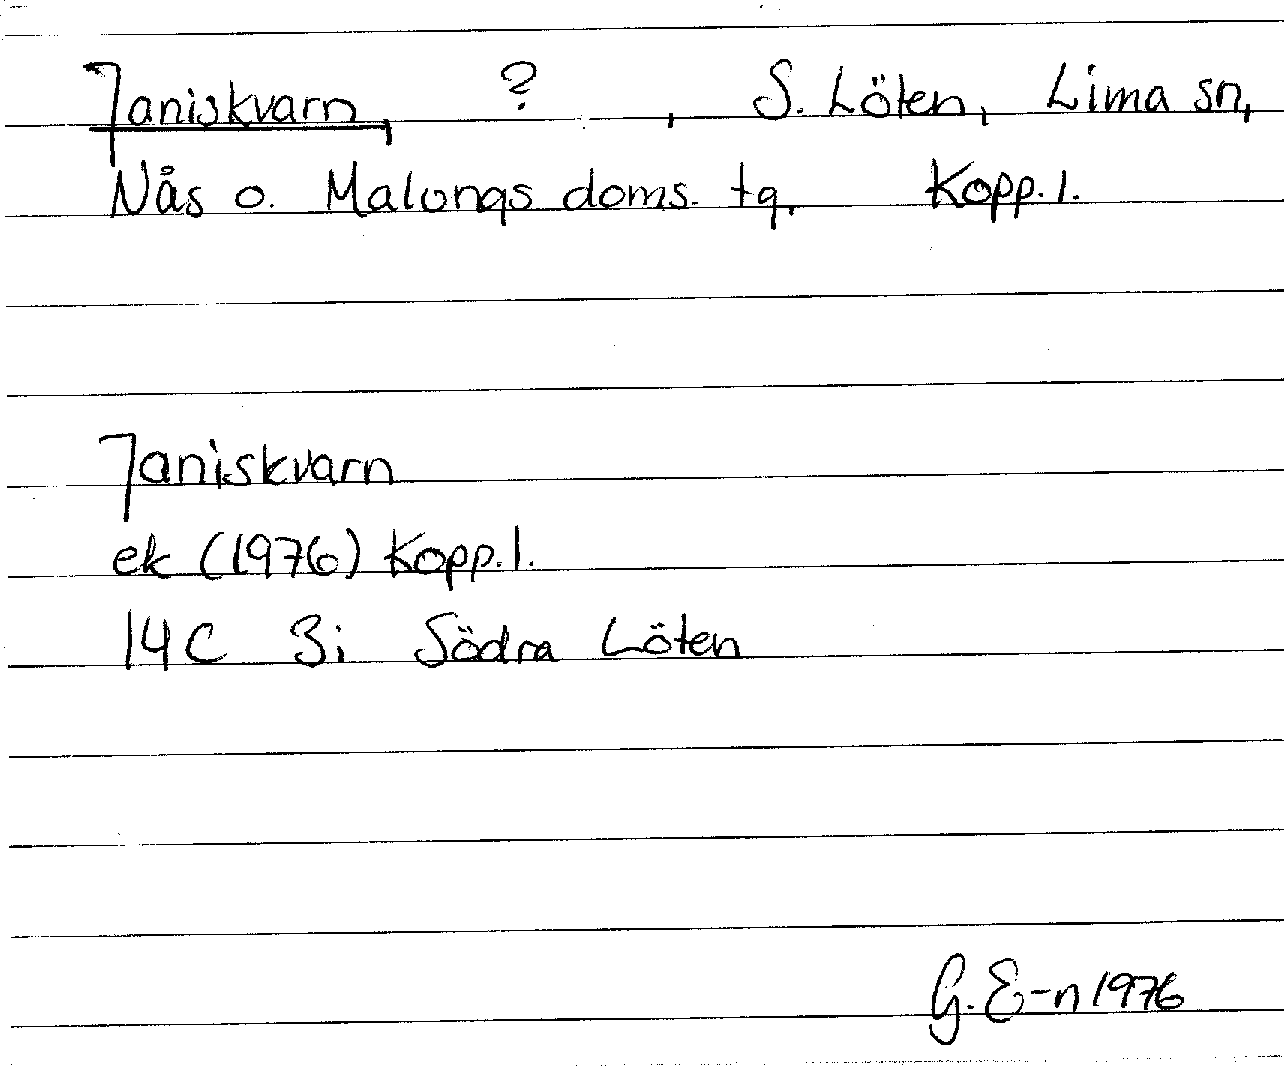 Janiskvarn, ? , S. Löten, Lima sn,
Nås o. Malungs doms. tg. Kopp. l.
Janiskvarn
ek (1976) Kopp. l.
14C 3i Södra Löten
G. E-n 1976